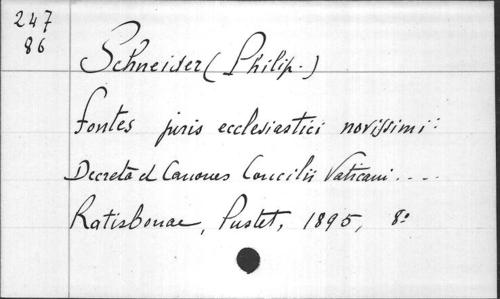 247
86
Schneider (Philip.)
Fontes juris ecclesiastici novissimi:
Decreta et Canones Concilii Vaticani....
Ratisbonae, Pustet, 1895, 8º